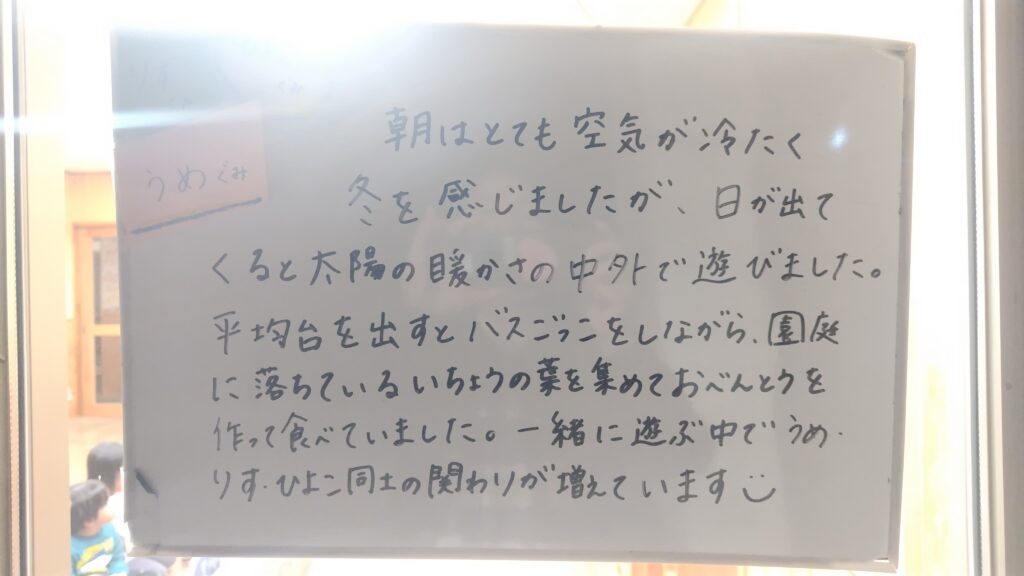 りす
ぐみ
うめぐみ
朝はとても空気が冷たく
冬を感じましたが、日が出て
くると太陽の暖かさの中外で遊びました。
平均台を出すとバスごっこをしながら、園庭
に落ちているいちょうの葉を集めておべんとうを
作って食べていました。一緒に遊ぶ中でうめ・
りす・ひよこ同士の関わりが増えています